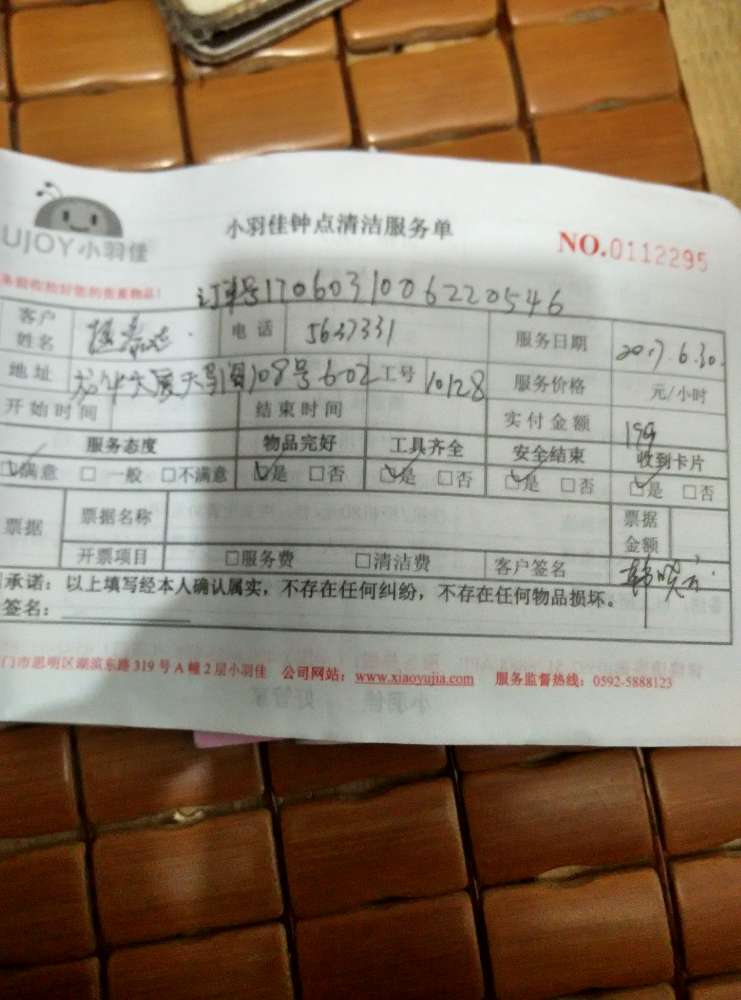 UJOY小羽佳
小羽佳钟点清洁服务单
NO.0112295
订单号1706031006220546
客户姓名 电话 5637331 服务日期 2017.6.30.
地址 108号602 工号 10128 服务价格 元/小时
开始时间 结束时间 实付金额 199
服务态度 物品完好 工具齐全 安全结束 收到卡片
☑满意 □一般 □不满意 ☑是 □否 ☑是 □否 ☑是 □否 ☑是 □否
票据 票据名称 票据金额
开票项目 □服务费 □清洁费 客户签名
承诺：以上填写经本人确认属实，不存在任何纠纷，不存在任何物品损坏。
签名：
门市思明区湖滨东路319号A幢2层小羽佳 公司网站：www.xiaoyujia.com 服务监督热线：0592-5888123